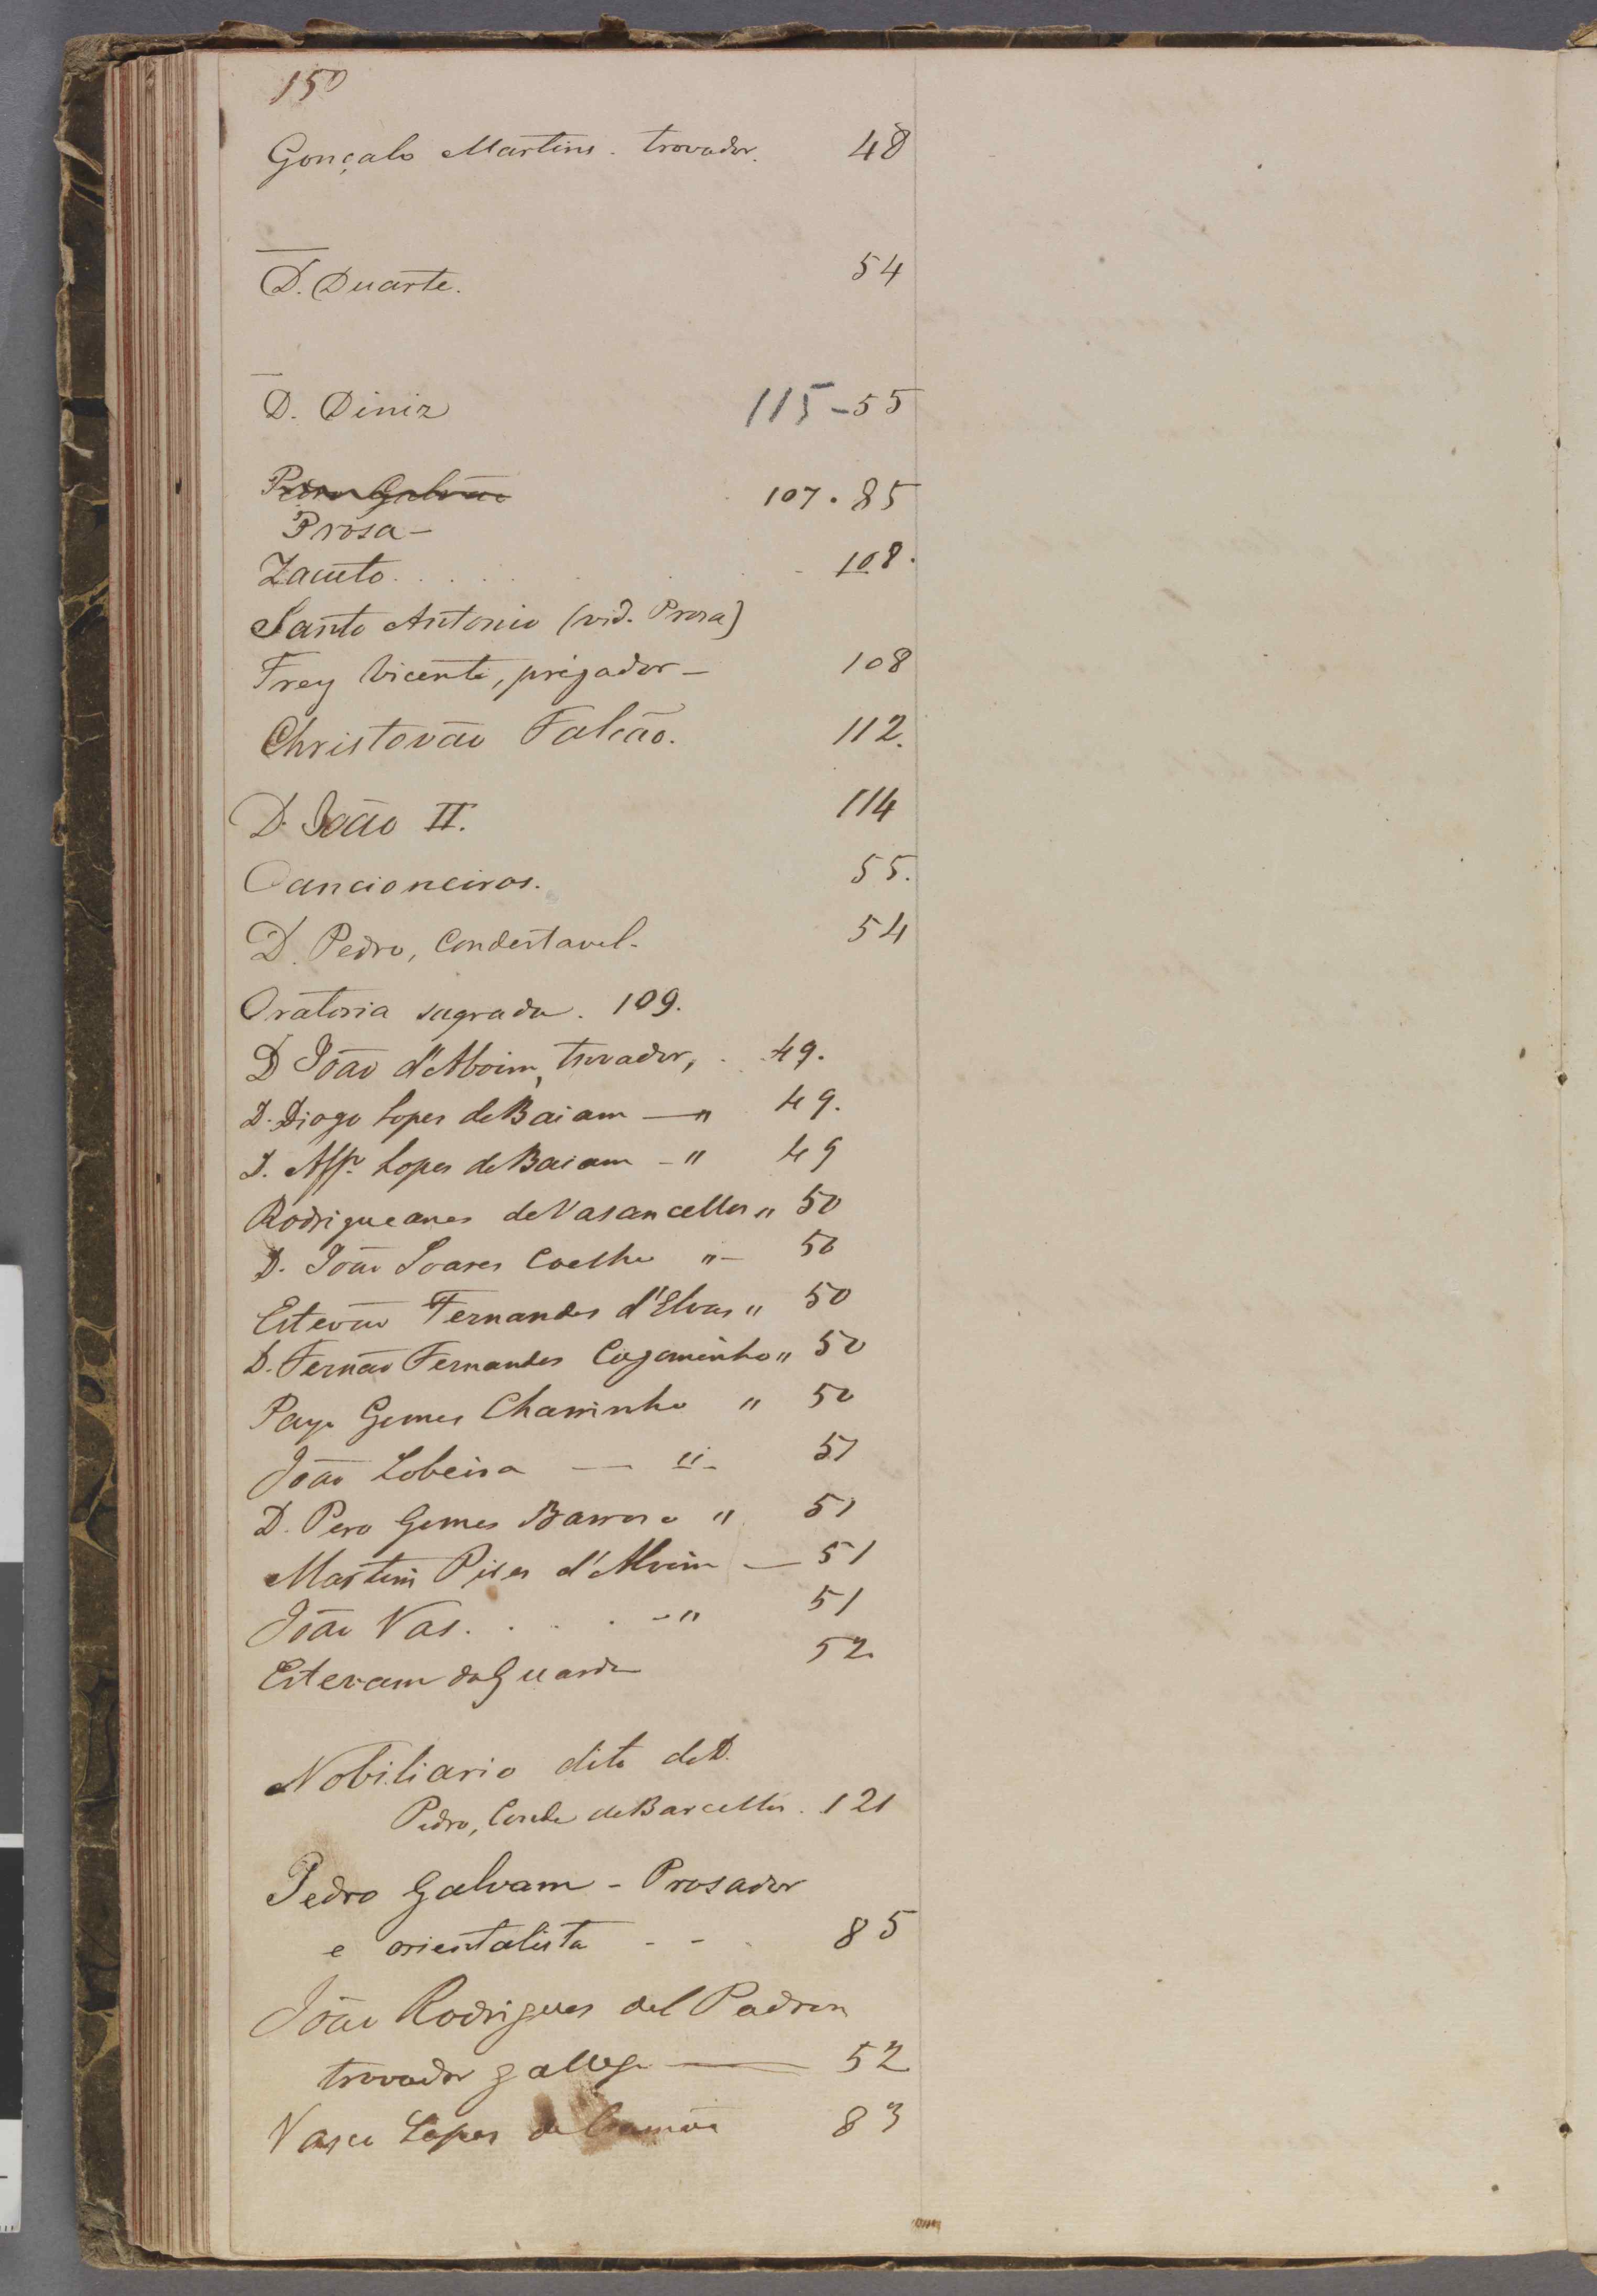 150
Gonçalo Martins. trovador. 48
D. Duarte. 54
D. Diniz 115-55
Pedro Galvão 107. 85
Prosa -
Zacuto. . . . . . 108.
Santo Antonio (vid. Prosa)
Frey Vicente, prégador - 108
Christovão Falcão. 112.
D. João II. 114
Cancioneiros. 55.
D. Pedro, Condestavel. 54
Oratoria sagrada. 109.
D João d'Aboim, trovador, . 49.
D. Diogo Lopes de Baiam — " 49.
D. Affº Lopes de Baiam - " 49
Rodrigueanes de Vasancellos " 50
D. João Soares Coelho " - 50
Estevão Fernandes d'Elvas " 50
D. Fernão Fernandes Cogominho " 50
Payo Gomes Charrinho " 50
João Lobeira — " - 51
D. Pero Gomes Barroso " 51
Martim Pires d'Alvim — 51
João Vas. . . . . - " 51
Estevam da Guarda 52.
Nobiliario dito de D.
Pedro, Conde de Barcellos. 121
Pedro Galvam - Prosador
e orientalista - - . 85
João Rodrigues del Padron
trovador gallego — 52
Vasco Lopes de Camões 83